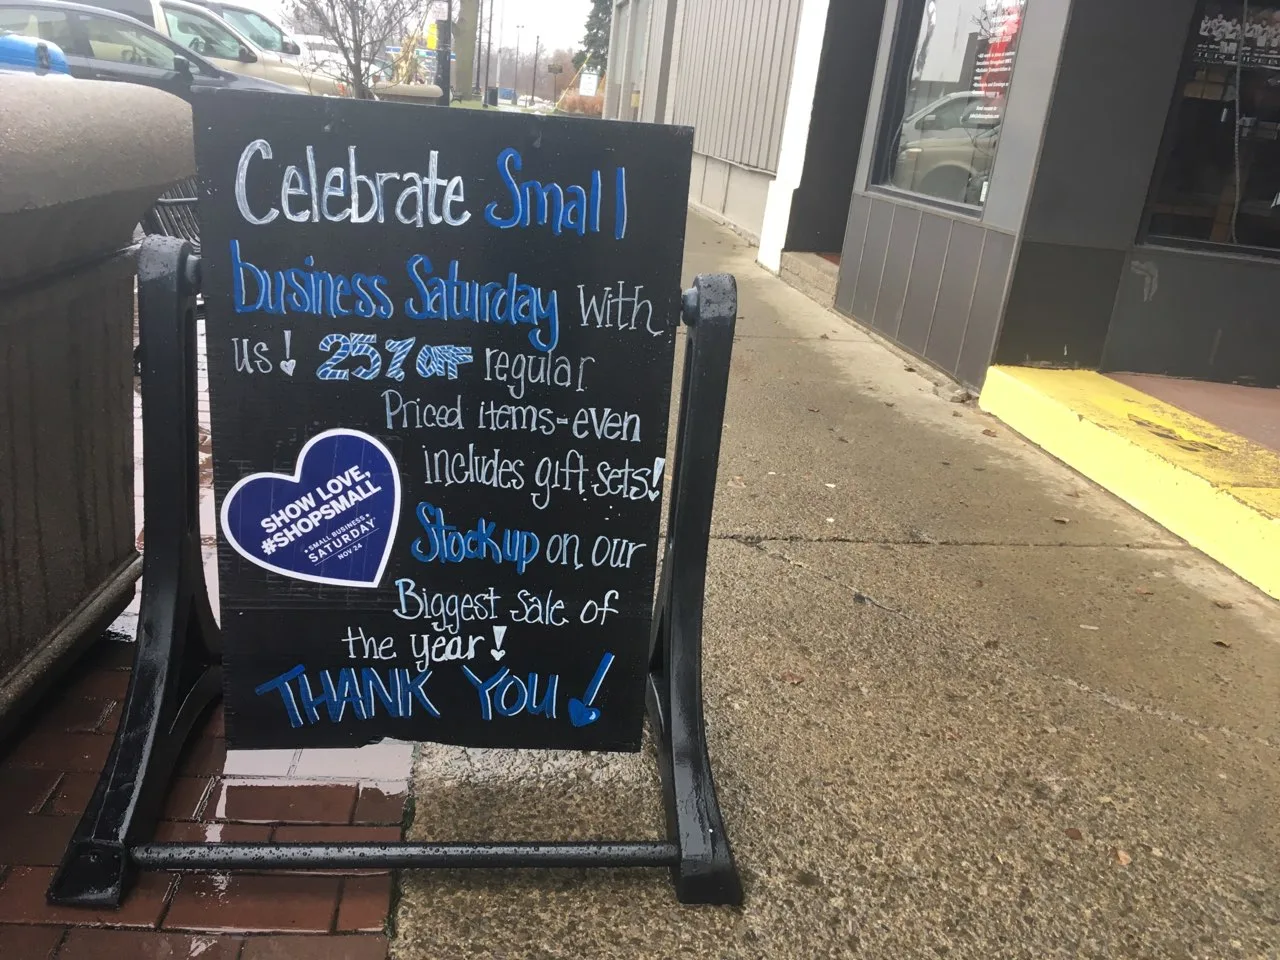 Celebrate Small
business Saturday with
us! 25% OFF regular
Priced items-even
includes gift sets!
SHOW LOVE,
#SHOPSMALL
• SMALL BUSINESS •
SATURDAY
NOV 24
Stock up on our
Biggest Sale of
the year!
THANK YOU!